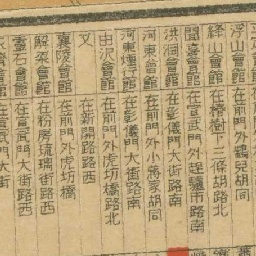 浮山會館 在前門外鷂兒胡同
絳山會館 在椿樹上二條胡同路北
聞喜會館 在宣武門外趕驢市路南
洪洞會館 在彰儀門大街路南
河東會館 在前門外小蔣家胡同
河東煙行會館 在彰儀門大街路南
曲沃會館 在前門外虎坊橋路北
又 在新開路路西
襄陵會館 在前門外虎坊橋
解梁會館 在粉房琉璃街路西
靈石會館 在宣武門大街路西